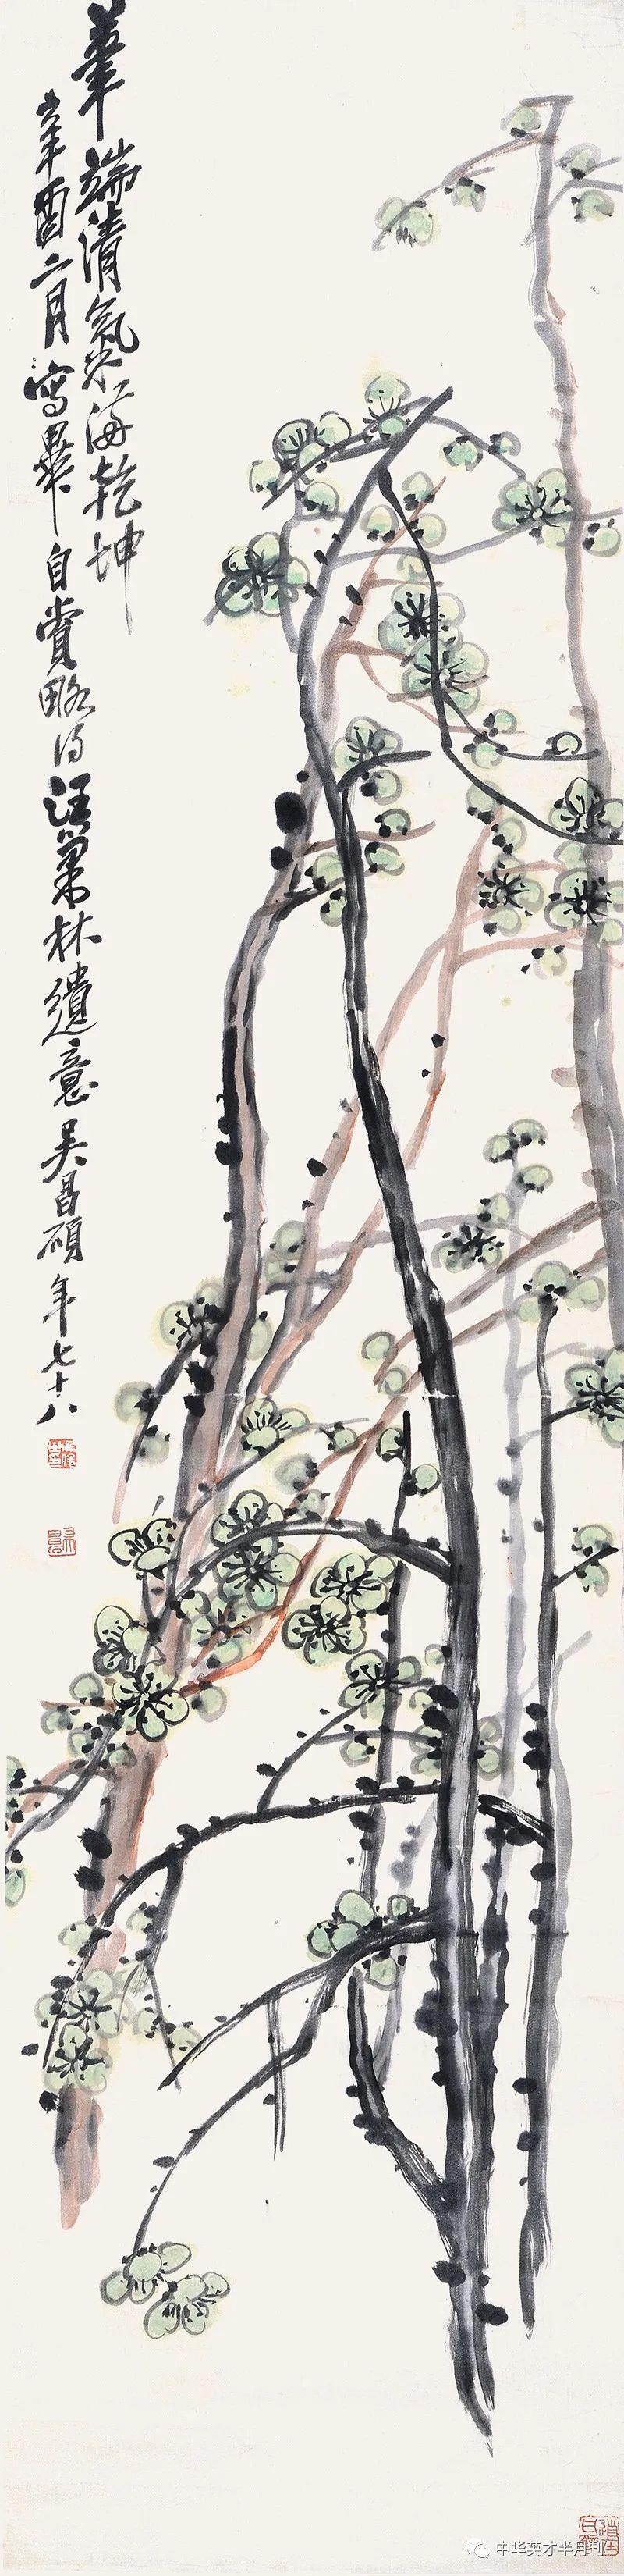 筆端清氣滿乾坤
辛酉二月寫畢自賞略得汪巢林遺意吳昌碩年七十八
中华英才半月刊